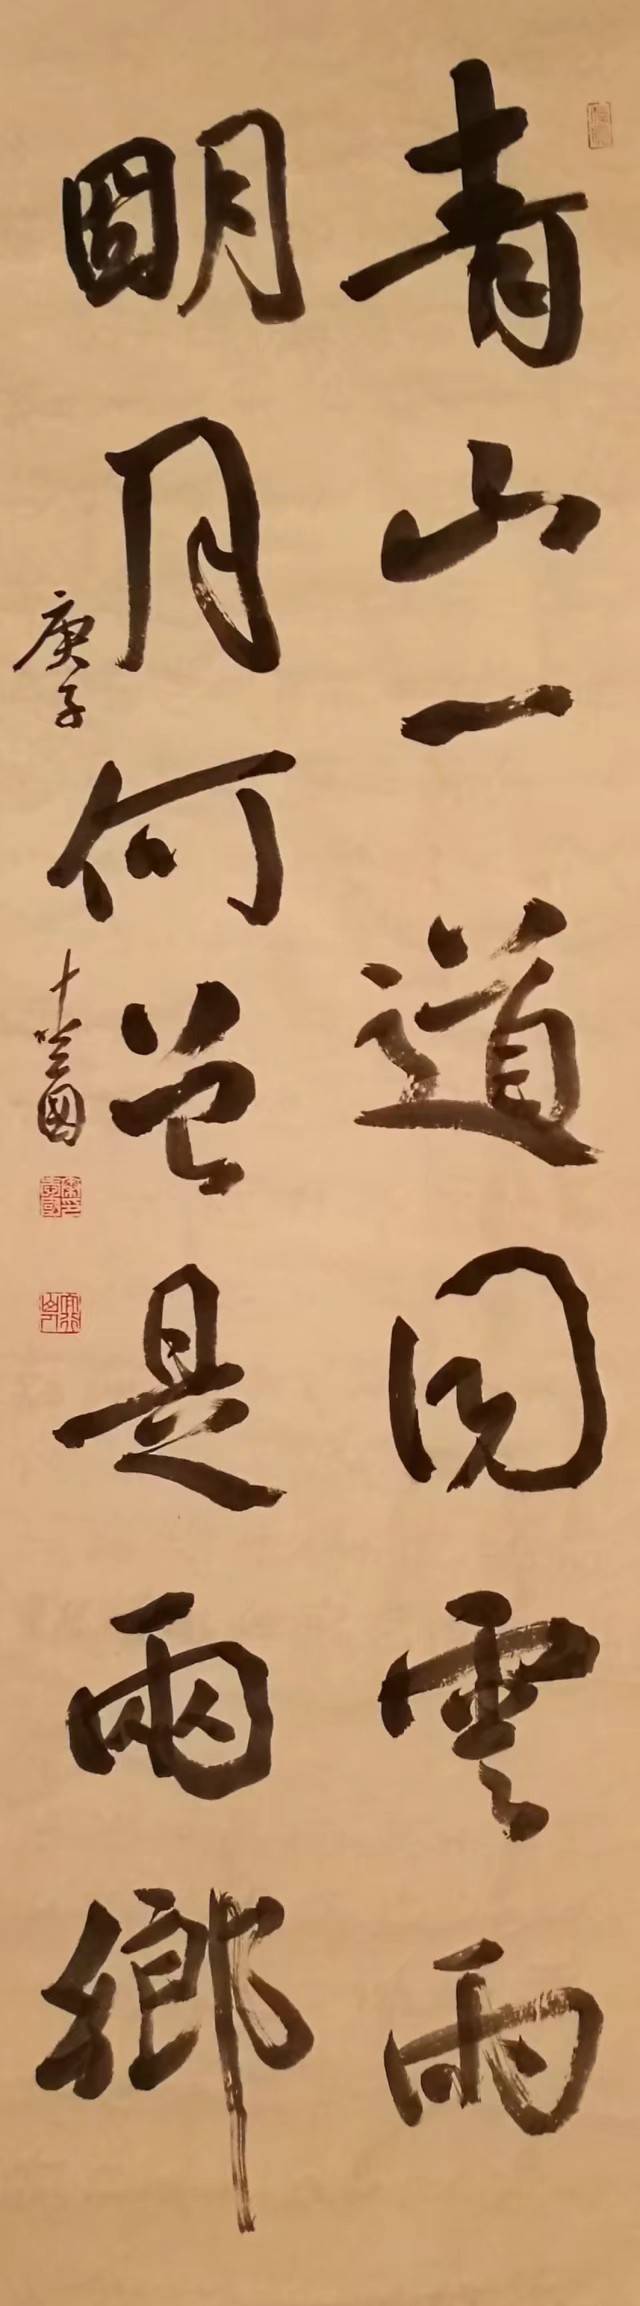 青山一道同雲雨
明月何曾是兩鄉
庚子